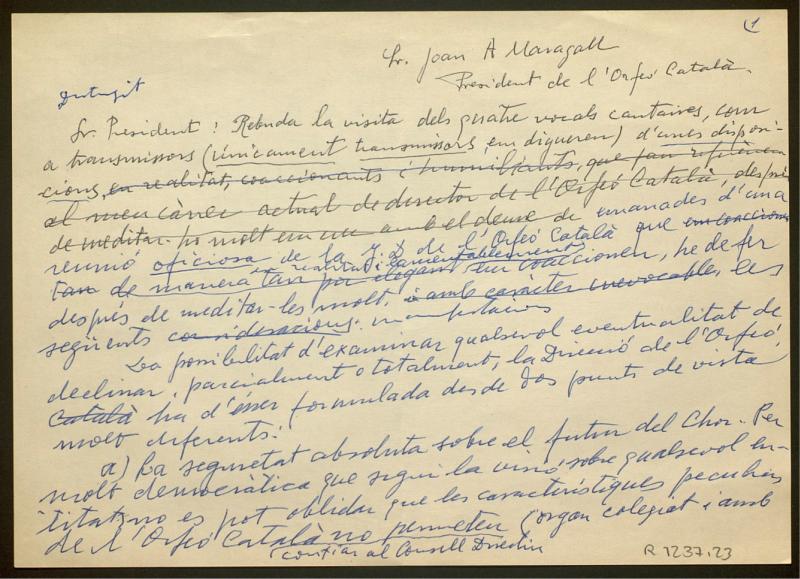 1
Sr. Joan A Maragall
President de l'Orfeó Català.
Sr. President: Rebuda la visita dels quatre vocals cantaires, com
a transmissors (únicament transmissors, em digueren) d'unes disposi-
cions, en realitat, coaccionants i humiliants, que fan referència
al meu càrrec actual de director de l'Orfeó Català, després
de meditar-ho molt em veu amb el deure de emanades d'una
reunió oficiosa de la J.D. de l'Orfeó Català que em coaccionen
realitat i lamentablement
tan de manera tan poc elegant em coaccionen, he de fer
després de meditar-les molt, i amb caràcter irrevocable, les
següents consideracions: manifestacions
La possibilitat d'examinar qualsevol eventualitat de
declinar, parcialment o totalment, la Direcció de l'Orfeó
Català ha d'ésser formulada desde dos punts de vista
molt diferents:
a) La seguretat absoluta sobre el futur del Chor. Per
molt democràtica que sigui la visió sobre qualsevol en-
titat, no es pot oblidar que les característiques peculiars
de l'Orfeó Català no permeten (organ colegiat i amb
confiar al Consell Directiu
R.1237.23